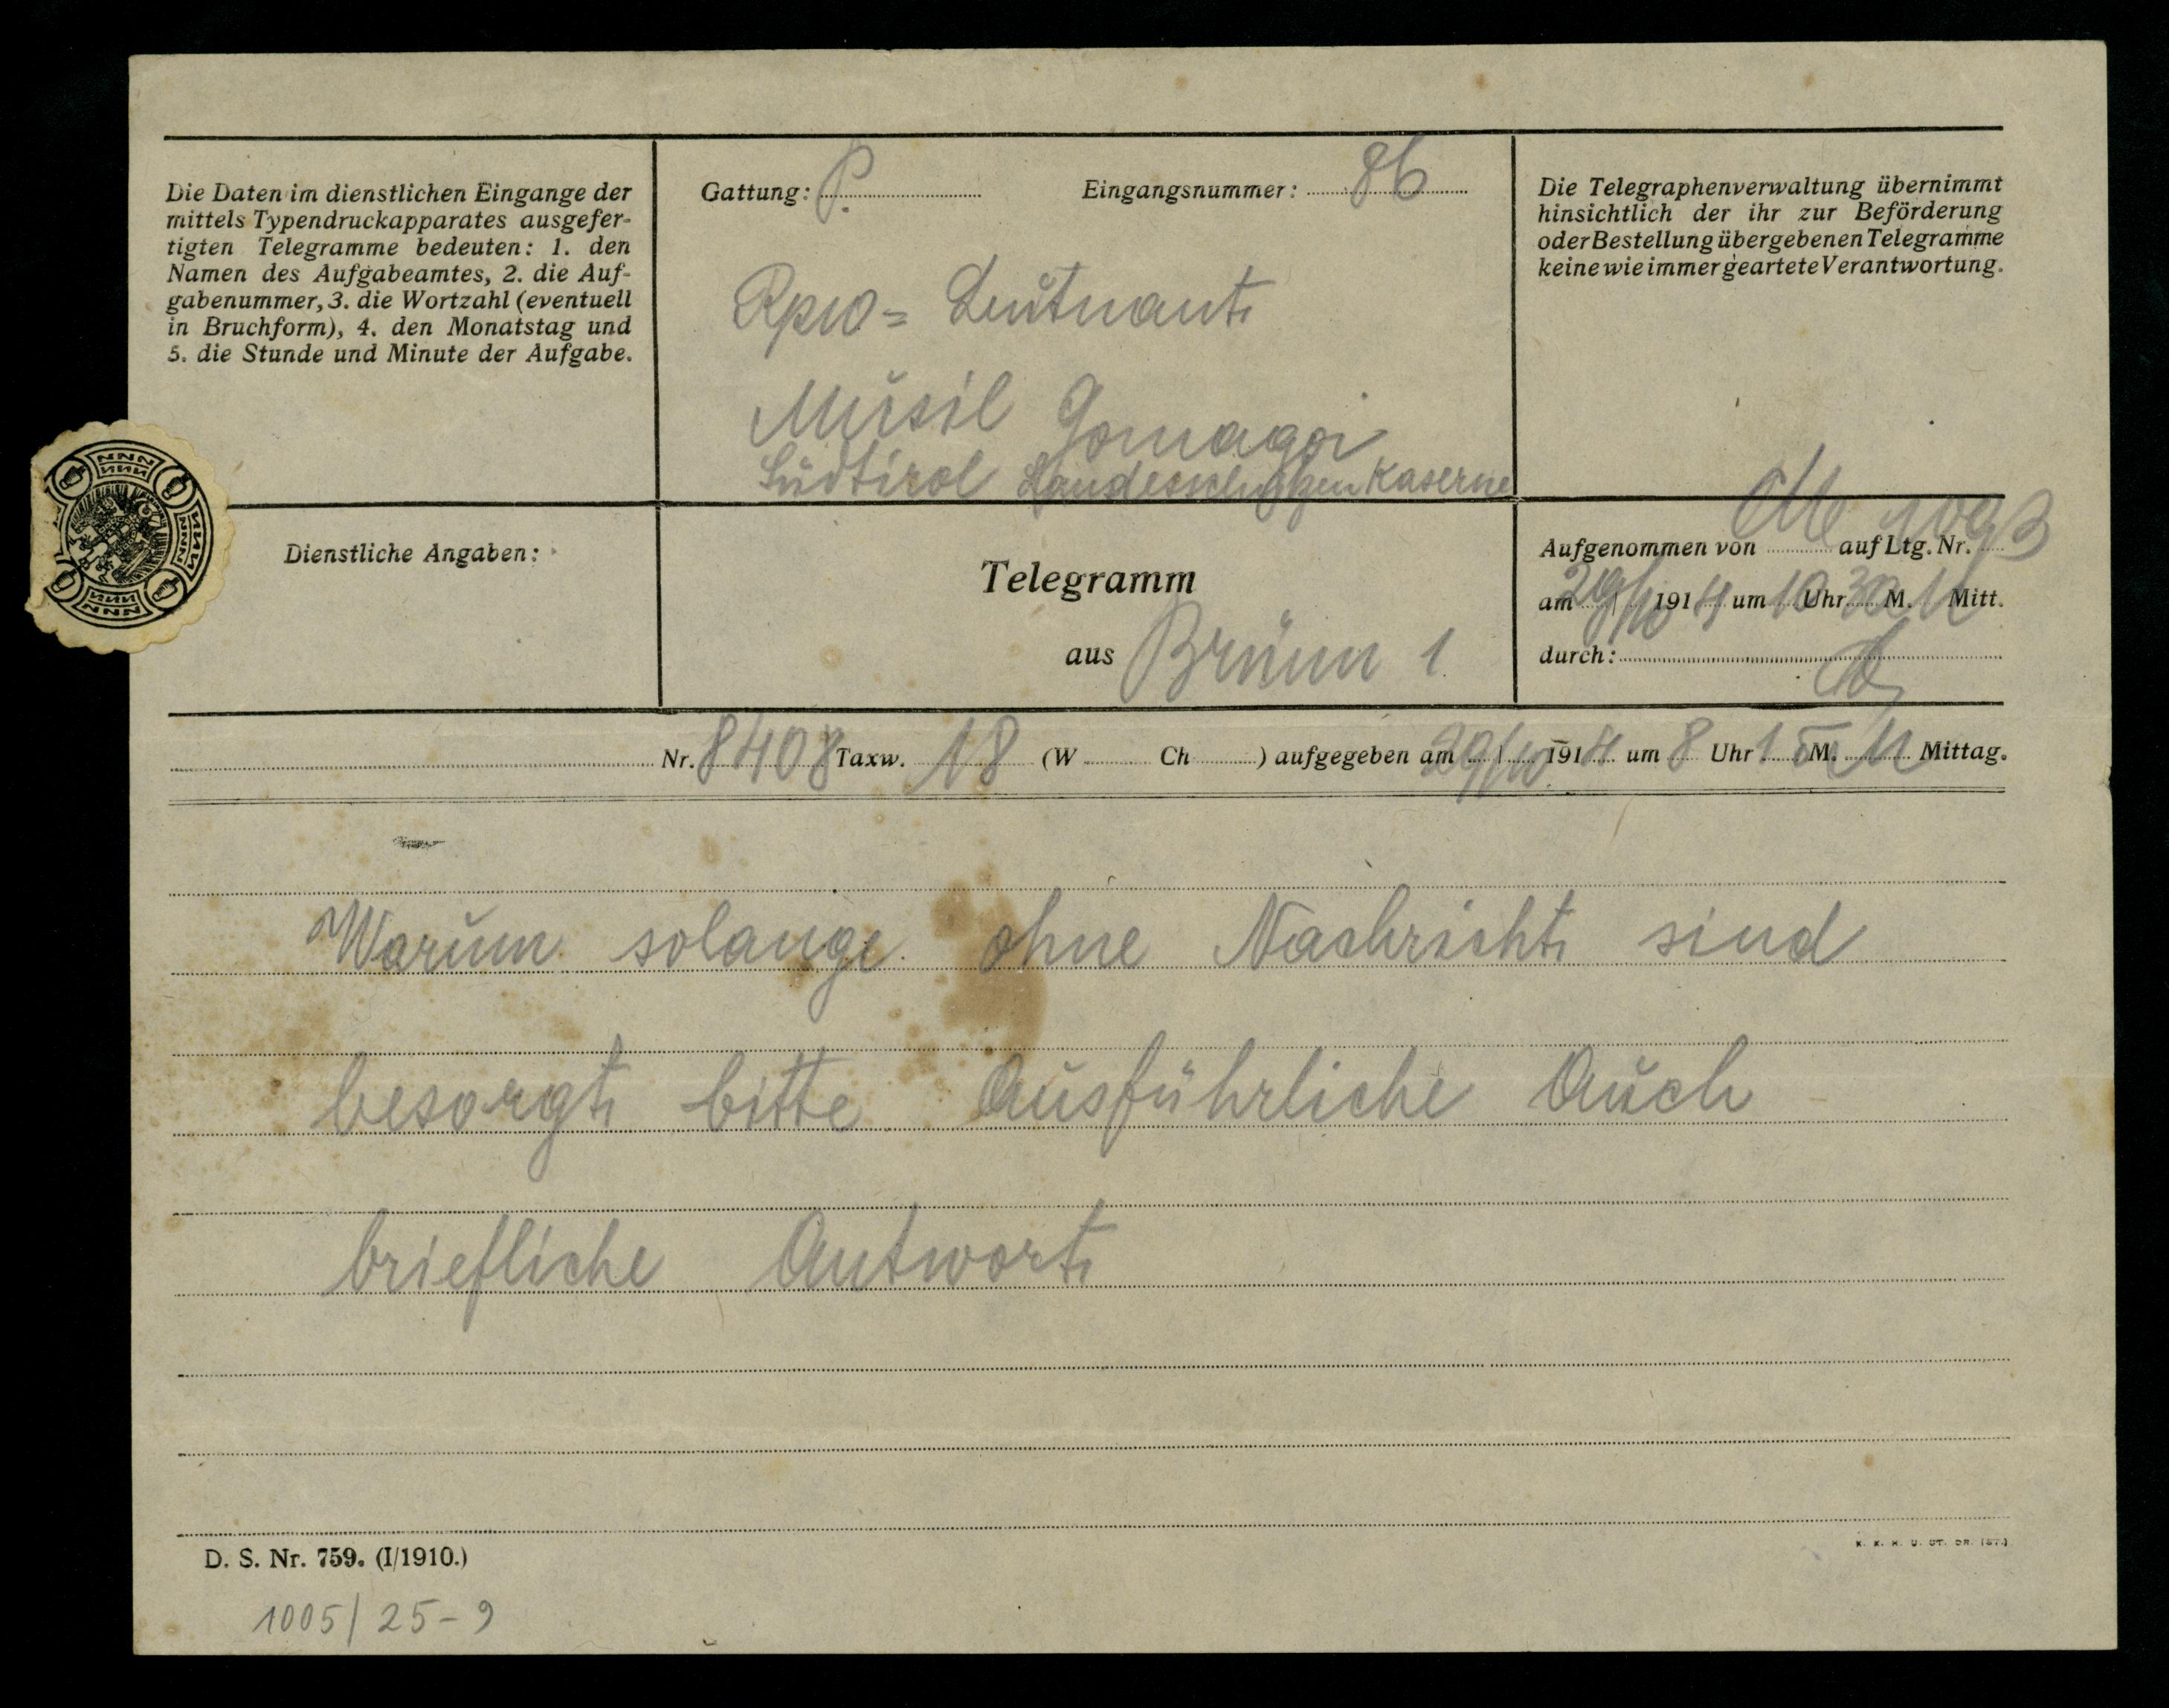 Die Daten im dienstlichen Eingange der
mittels Typendruckapparates ausgefer-
tigten Telegramme bedeuten: 1. den
Namen des Aufgabeamtes, 2. die Auf-
gabenummer, 3. die Wortzahl (eventuell
in Bruchform), 4. den Monatstag und
5. die Stunde und Minute der Aufgabe.
Gattung: P. Eingangsnummer: 86
Rp10= Leutnant
Musil Gomagoi
Südtirol Landesschützen Kaserne
Die Telegraphenverwaltung übernimmt
hinsichtlich der ihr zur Beförderung
oder Bestellung übergebenen Telegramme
keine wie immer geartete Verantwortung.
Dienstliche Angaben:
Telegramm
aus Brünn 1
Aufgenommen von auf Ltg. Nr.
am 29/10 1914 um 10 Uhr 30 M. Mitt.
durch:
Nr. 8408 Taxw. 18 (W Ch ) aufgegeben am 29/10 1914 um 8 Uhr 15 M. Mittag.
Warum solange ohne Nachricht sind
besorgt bitte Ausführliche Auch
briefliche Antwort
D. S. Nr. 759. (I/1910.)
1005/25-9